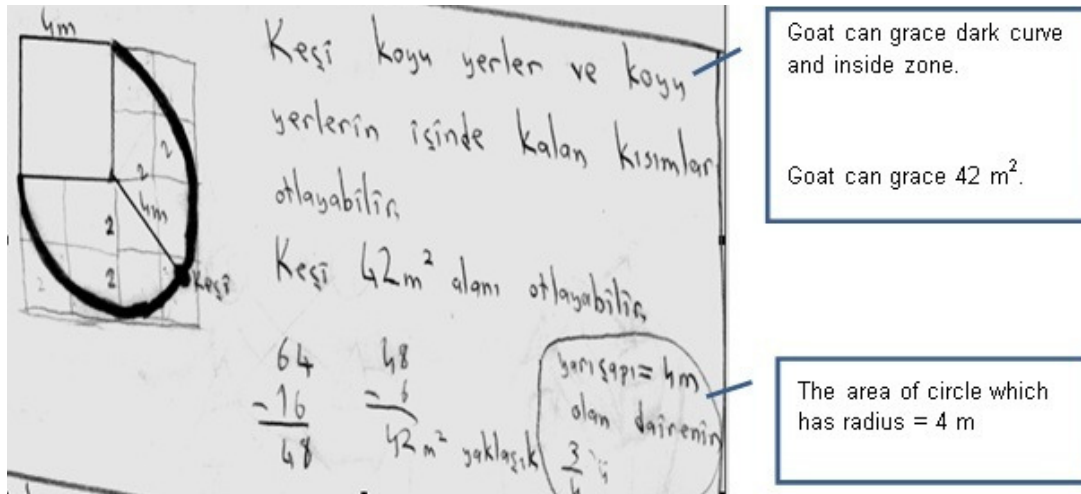 4m
Keçi koyu yerler ve koyu
yerlerin içinde kalan kısımları
otlayabilir.
2
2
4m
2
2
2
Keçi
Keçi 42m² alanı otlayabilir.
64
- 16
48
48
- 6
42 m² yaklaşık
yarıçapı = 4m
olan dairenin
3/4 'ü
Goat can grace dark curve
and inside zone.
Goat can grace 42 m².
The area of circle which
has radius = 4 m